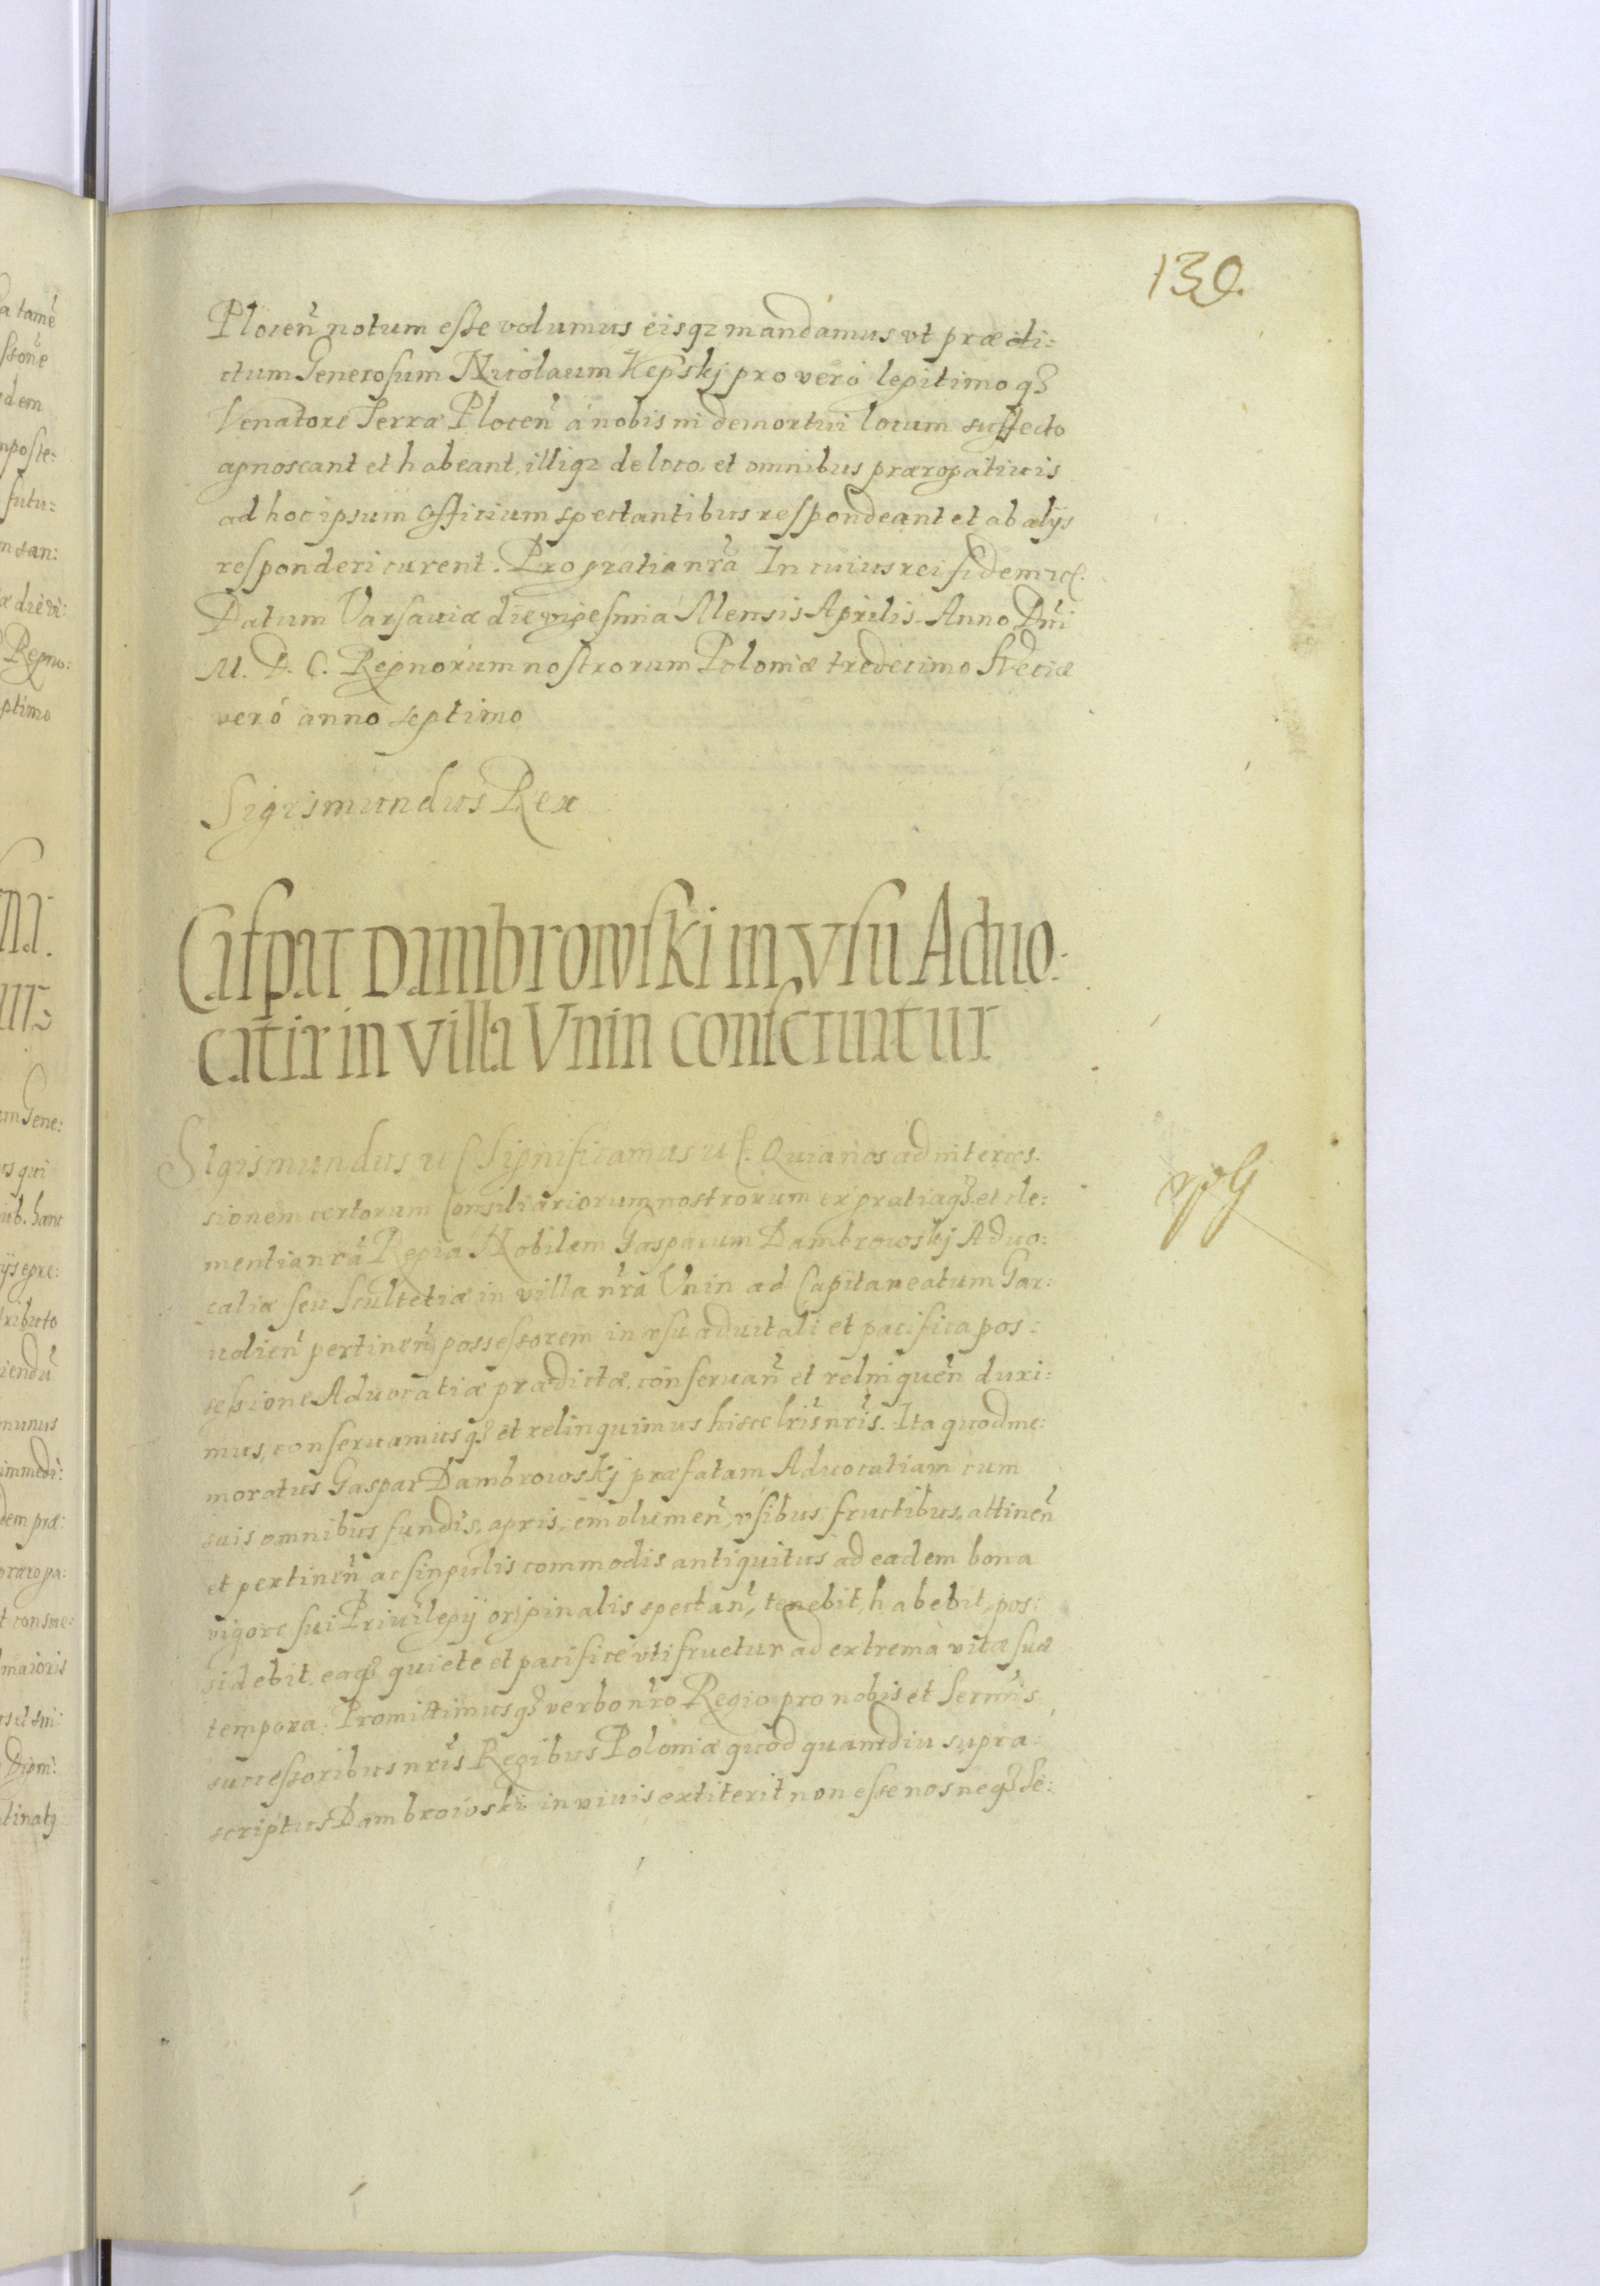 130.
Plocen̄ notum esse volumus eisqz mandamus vt prædi:
ctum Generosum Nicolaum Kępskj pro vero legitimo qȝ
Venatore Terræ Plocen̄ à nobis in demortui locum suffecto
agnoscant et habeant, illiqz de loco, et omnibus prærogatiuis
ad hoc ipsum officium spectantibus respondeant et ab alijs
responderi curent. Pro gratia nrā In cuius rei fidem
Datum Varsauiæ die vigesima Mensis Aprilis Anno Dni
M. D. C. Regnorum nostrorum Poloniæ tredecimo Sveciæ
veró anno septimo
Sigismundus Rex
Caspar Dambrowski in vsu Aduo:
catiæ in villa Vnin conseruatur
Sigismundus Significamus Quia nos ad interces:
sionem certorum Consiliariorum nostrorum ex gratia qȝ et cle:
mentia nrā Regia Nobilem Gasparum Dambrowskj Aduo:
catiæ seu Scultetiæ in villa nrā Vnin ad Capitaneatum Gar:
uolien̄ pertinen̄ possessorem in vsu aduitali et pacifica pos:
sessione Aduocatiæ prædictæ, conseruan̄ et relinquen̄ duxi:
mus, conseruamus qȝ et relinquimus hisce lris nris. Ita quod me:
moratus Gaspar Dambrowskj præfatam Aduocatiam cum
suis omnibus fundis, agris, emolumen̄, vsibus, fructibus, attinen̄
et pertinen̄ ac singulis commodis antiquitus ad eadem bona
vigore sui Priuilegij originalis spectan̄, tenebit, habebit, pos:
sidebit, eaqȝ quiete et pacifice vti fruetur ad extrema vitæ suæ
tempora. Promittimus qȝ verbo nro Regio pro nobis et Sermis
successoribus nris Regibus Poloniæ quod quamdiu supra:
scriptus Dambrowski in viuis extiterit non esse nos neqȝ Se: